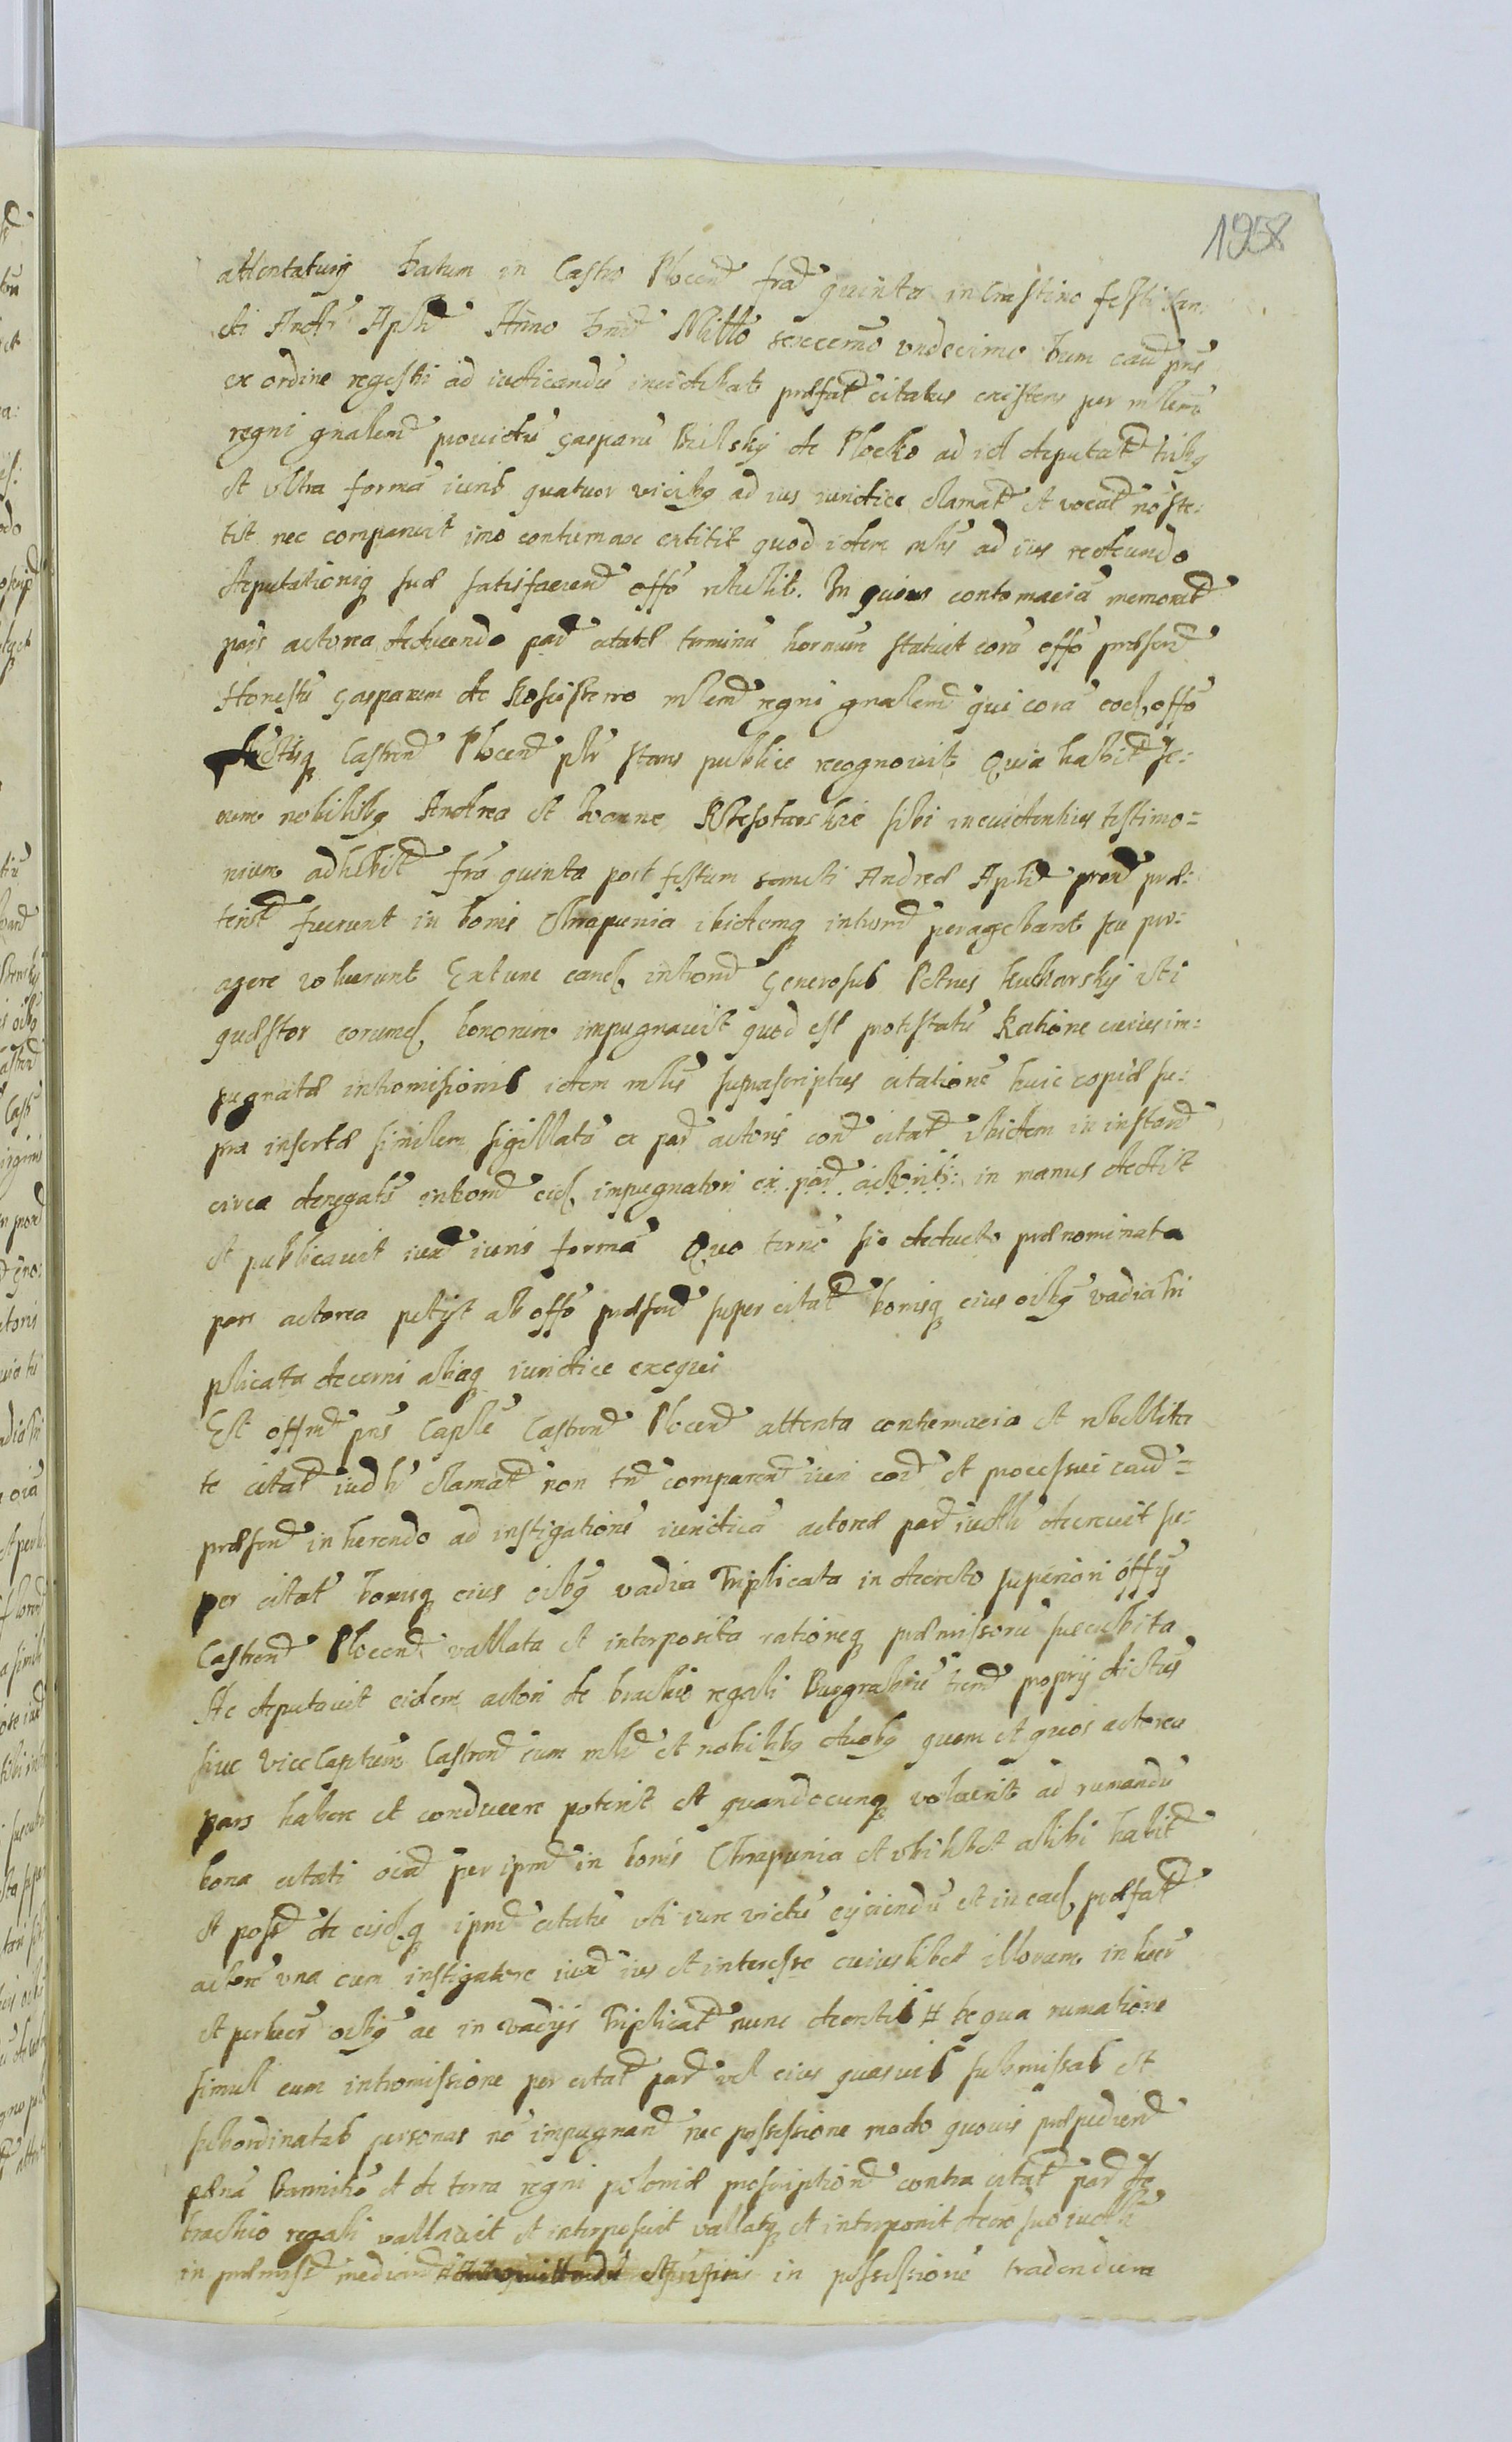 1258
attentatur9 Datum in Castro Plocen frā quinta in crastino festi San:
cti Andr Aplī Anno Dnī Millō sexcentmō undecimo Dum cau pns
ex ordine regestri ad iudicandū incidebat præfat citatus existens per mlēm
regni gnalem providū Gasparū Bielskij de Plocko ad id deputat tribq
et ultra formā iuris quatuor vicibq ad ius iuridice clamat et vocat nō ste:
tit nec comparuit imo contumax extitit quod idem mlīs ad ius redeundo
deputationiq suæ satisfaciend offō retulit. In cuius contumaciā memorat
pars actorea deducendo par citatæ terminū hornum statuit corā offō præsen
Honestū Gasparem de mlem regni gnalem qui corā eod, offō
Actisq Castren Plocen plr stans publice recognovit Quia habit se:
cum nobilibq Andrea et Ioanne sibi in evidentius testimo=
nium adhibit frā quinta post festum sancti Andreæ Aplī præ:
terit fuerunt in bonis Chrapunia ibidemq introm peragebant seu per:
agere voluerunt Extunc eand, introm Generosus Petrus Kucharskij uti
quæstor eorund, bonorum impugnavit quod est protestatū Ratione cuius im:
pugnatæ intromisionis idem mlīs suprascriptus citationē huic copiæ su:
pra insertæ similem sigillatā ex par actoris con citat ibidem in instan
circa denegatē introm eid, impugnatori ex par actoris: in manus dedit
et publicavit iux iuris formā Quo termō sic deducto prænominata
pars actorea petijt ab offō præsen super citat bonisq eius oibq vadia tri
plicata decerni aliaq iuridice exequi
Et offm pns Caplē Castren Plocen attenta contumacia et rebellita
te citat iud clamat non tn comparen iuri cor et processui cau=
præsen inherendo ad instigationē iuridicā actoreæ par decrevit su:
per citat bonisq eius oibq vadia Triplicata in decreto superiori offij
Castren Plocen vallata et interposita rationeq præmissorū succubita
Ac deputavit eidem actori de brachio regali Burgrabiū proprij dictus
sive vice Capitum Castren cum mlī et nobilibq duobq quem et quos actorea
pars habere et conducere poterit et quandocunq voluerit ad rumandū
bona citati oia per ipm in bonis Chrapunia et ubilibet alibi habit
et poss de eisd,q ipm citatū uti iure victū eijciendū et in ead, præfat
actorē una cum instigatore iux ius et interesse cuiuslibet illorum in lucr
et perlucr oibq ac in vadijs Triplicat nunc decretis # De qua rumatione
simul cum intromissione per citat par vel eius quasvis submissas et
subordinatas personas nō impugnan nec possessione modo quovis præpedien
pænā Bannitiō et de terra regni poloniæ proscription contra citat par de
brachio regali vallavit et interposuit vallatq et interponit decrō suo
in præmiss median in possessionē tradendum